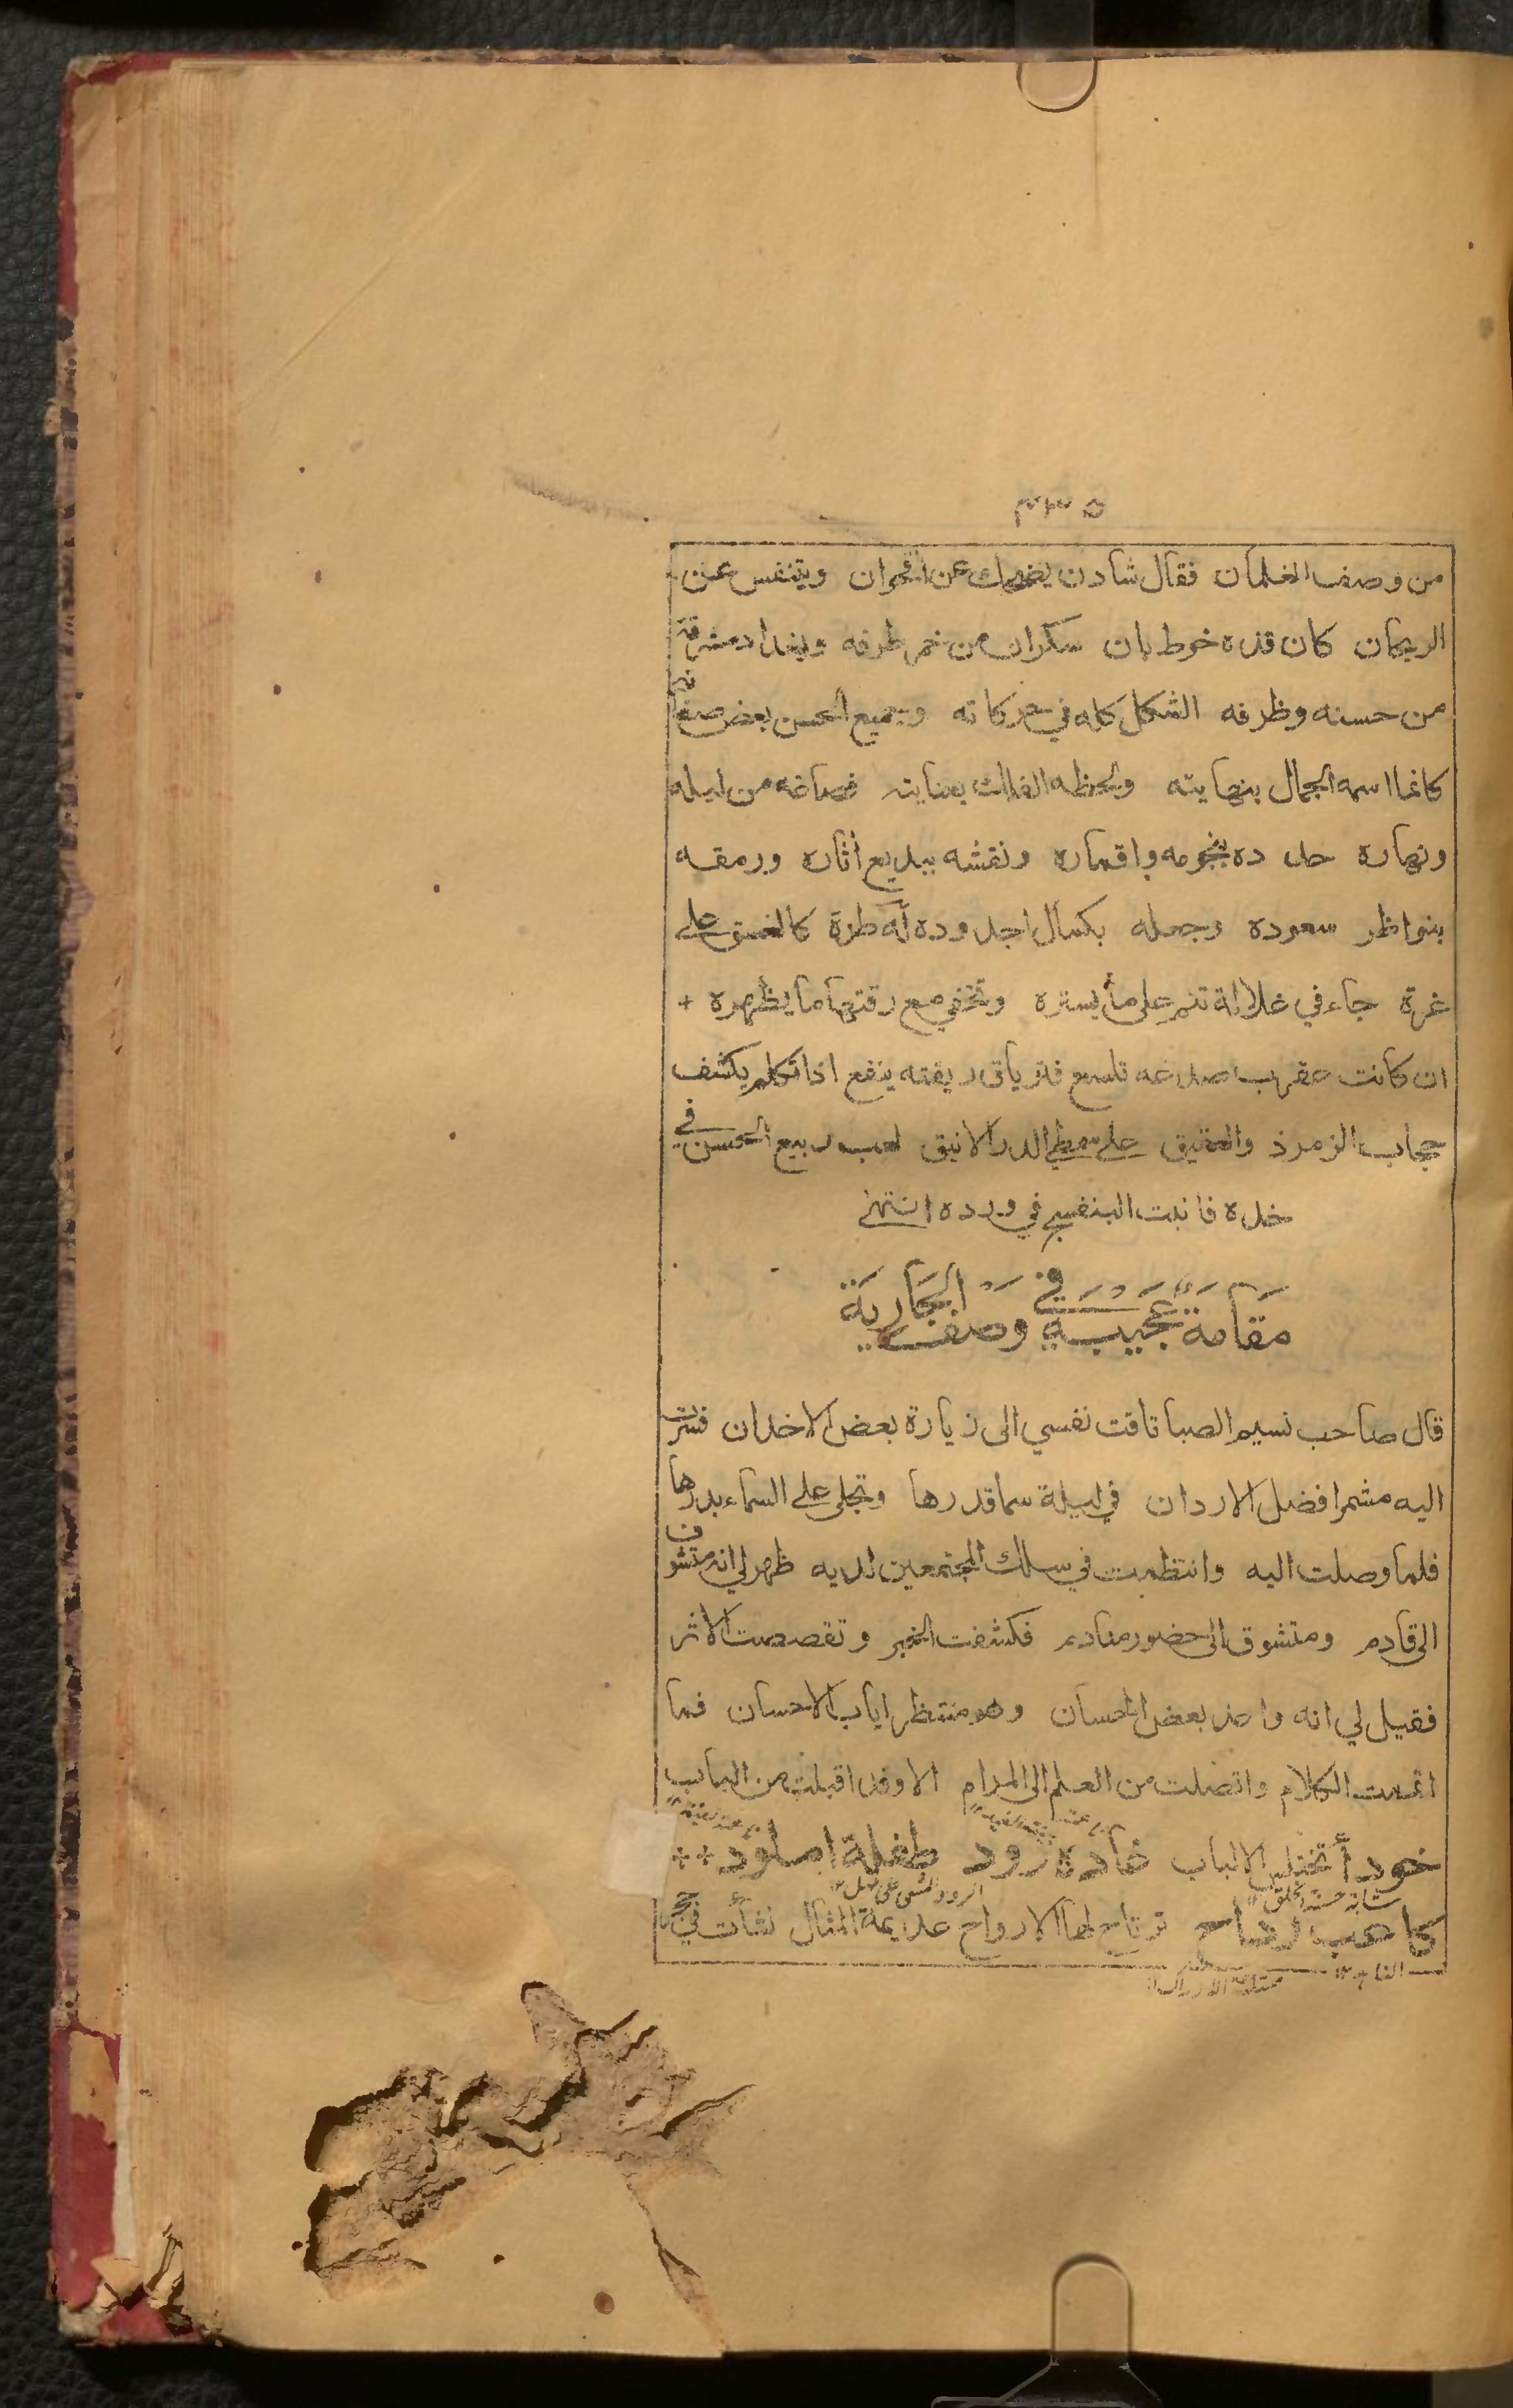 ٢٣٥
من وصف الغلمان فقال شادن يضحك عن اقحوان ويتنفس عن
الريحان كان قده خوط بان سكران من خمر طرفه وبغداد مشرقة
من حسنه وظرفه الشكل كله في حركاته وجميع الحسن بعض صفاته
كانما اسمه الجمال بنهايته ولحظه الفلك بعنايته فصاغه من ليله
ونهاره حلاه بنجومه واقماره ونقشه ببديع أثاره ورمقه
بنواظر سعوده وجعله بكمال اجدوده له طرة كالغسق على
غرة جاء في غلالة تنم على ما يستره وتخفي مع رقتها ما يظهره +
ان كانت عقرب صدغه تلسع فترياق ريقته ينفع اذا تكلم يكشف
حجاب الزمرذ والعقيق على سمطي الدر الانيق لعب ربيع الحسن في
خده فانبت البنفسج في ورده انتهى
مَقَامَةٌ عَجَيبَةٍ في وَصْفِ الْجَارِيَة
قال صاحب نسيم الصبا تاقت نفسي الى زيارة بعض الاخدان فسرت
اليه مشمرا فضل الاردان في ليلة سما قدرها وتجلى على السماء بدرها
فلما وصلت اليه وانتظمت في سلك المجتمعين لديه ظهر لي انه متشوف
الى قادم ومتشوق الى حضور منادم فكشفت الخبر وتقصصت الاثر
فقيل لي انه واعد بعض الحسان وهو منتظر اياب الاحسان فما
اتممت الكلام واتصلت من العلم الى المرام الا وقد اقبلت من الباب
خود أتختلس الالباب غادة رود طفلة املود ++
شابة حسنة الخلق الرود التمشي على مهل
كاعب رداح ترتاح لها الارواح عديمة المثال نشأت في حجر
الناهد ممتلئة الاوراك